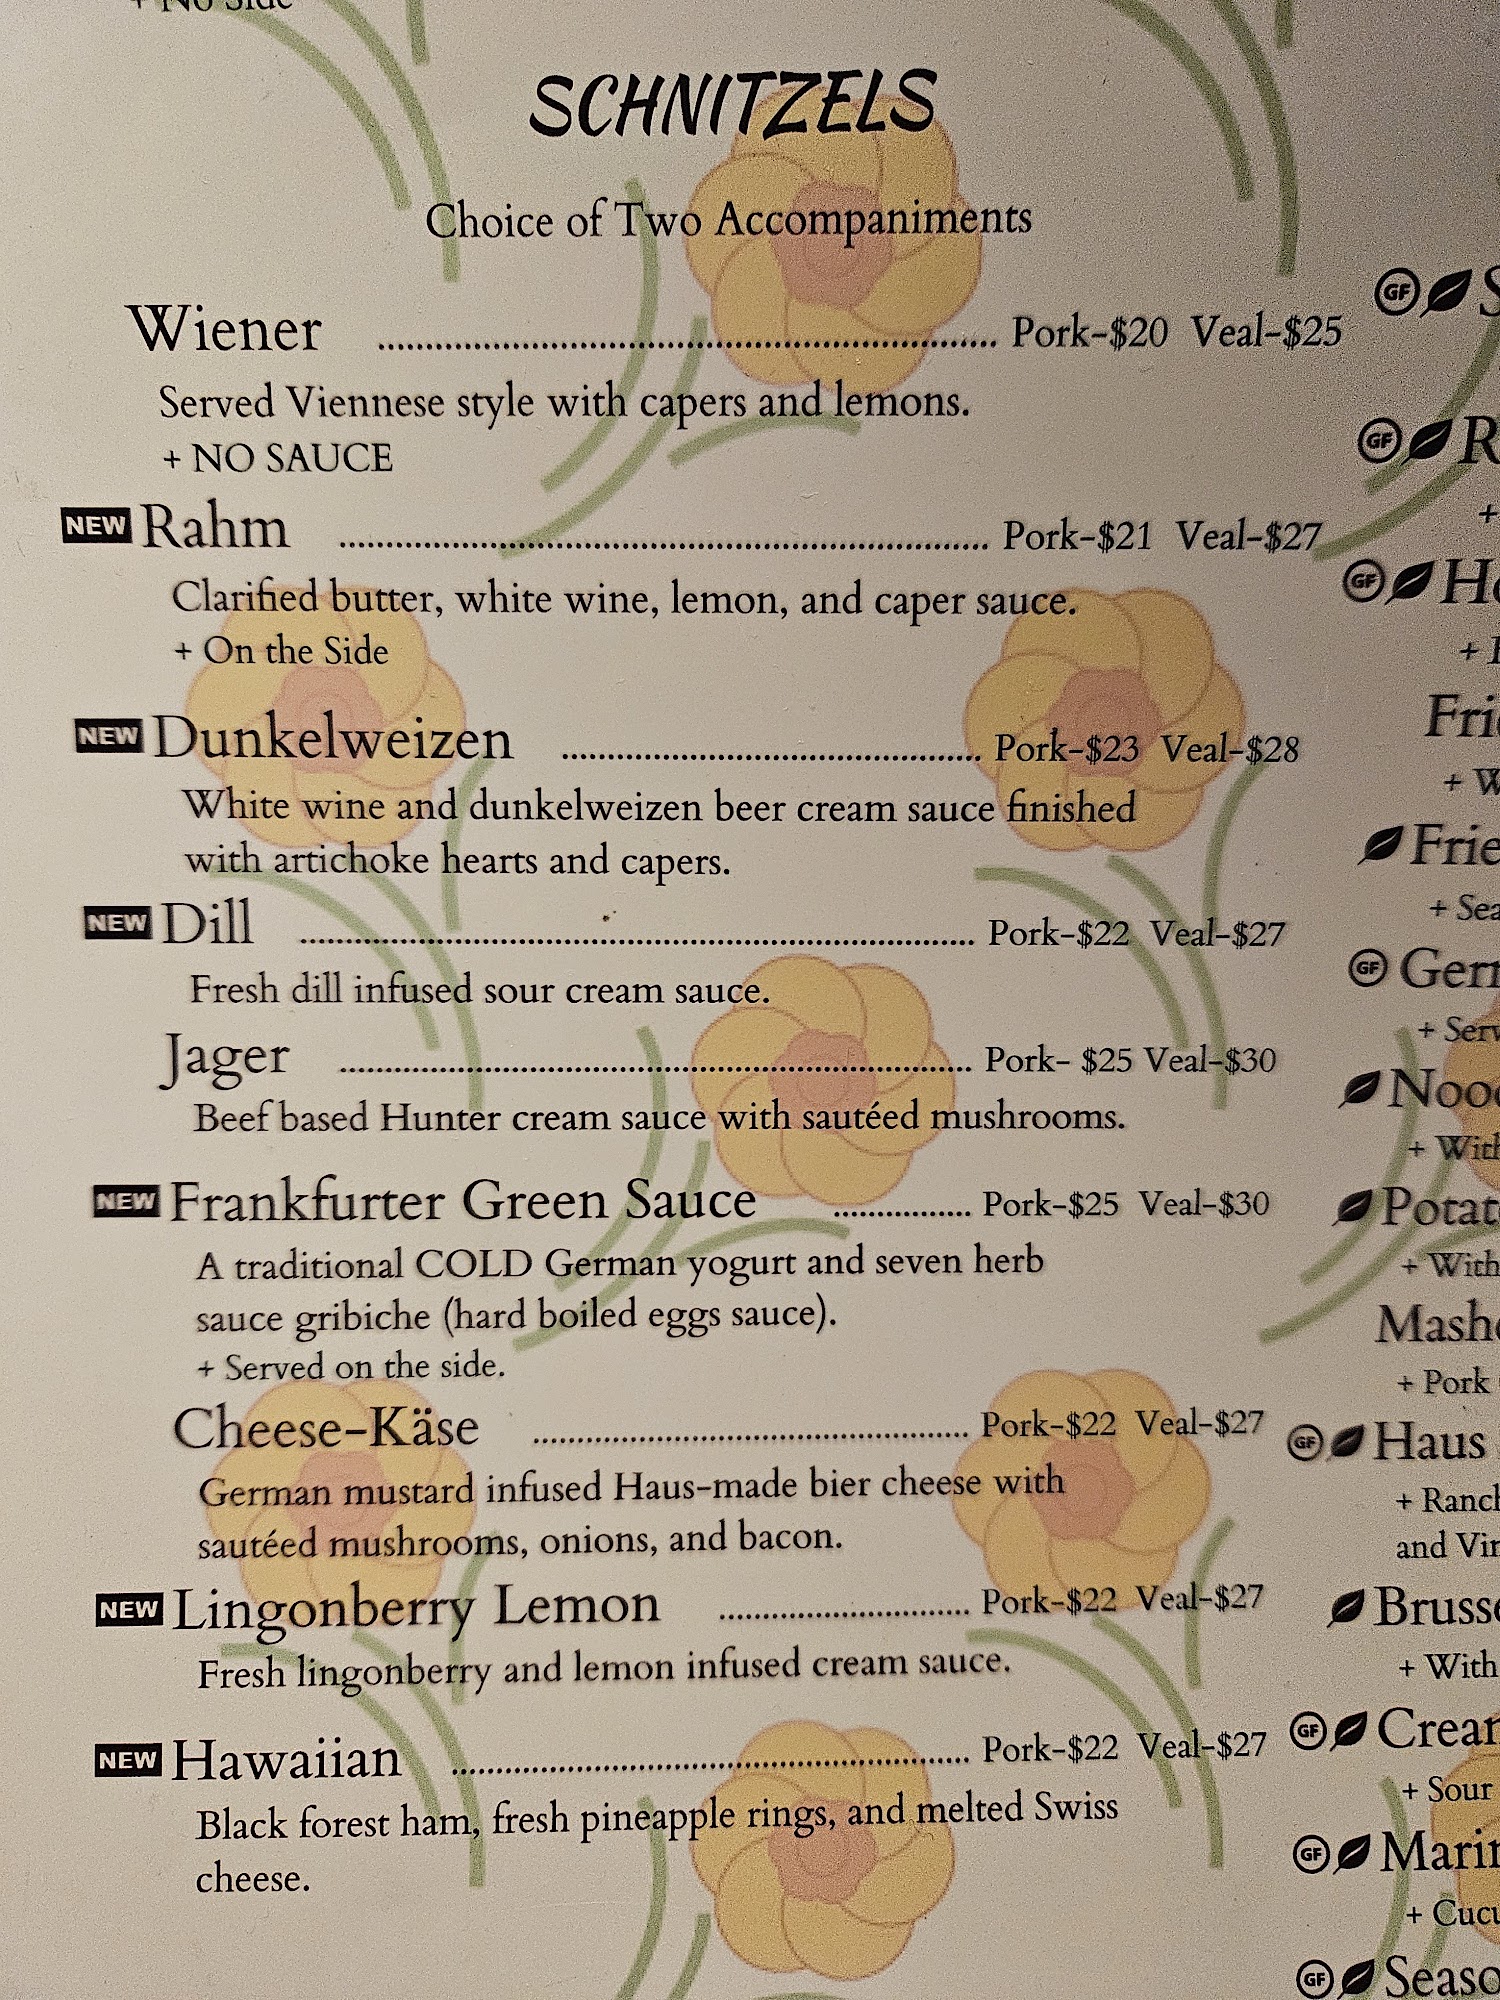 + No Side
SCHNITZELS
Choice of Two Accompaniments
Wiener ........ Pork-$20 Veal-$25
Served Viennese style with capers and lemons.
+ NO SAUCE
NEW Rahm ........ Pork-$21 Veal-$27
Clarified butter, white wine, lemon, and caper sauce.
+ On the Side
NEW Dunkelweizen ........ Pork-$23 Veal-$28
White wine and dunkelweizen beer cream sauce finished
with artichoke hearts and capers.
NEW Dill ........ Pork-$22 Veal-$27
Fresh dill infused sour cream sauce.
Jager ........ Pork- $25 Veal-$30
Beef based Hunter cream sauce with sautéed mushrooms.
NEW Frankfurter Green Sauce ........ Pork-$25 Veal-$30
A traditional COLD German yogurt and seven herb
sauce gribiche (hard boiled eggs sauce).
+ Served on the side.
Cheese-Käse ........ Pork-$22 Veal-$27
German mustard infused Haus-made bier cheese with
sautéed mushrooms, onions, and bacon.
NEW Lingonberry Lemon ........ Pork-$22 Veal-$27
Fresh lingonberry and lemon infused cream sauce.
NEW Hawaiian ........ Pork-$22 Veal-$27
Black forest ham, fresh pineapple rings, and melted Swiss
cheese.
GF
GF
+
GF
+
+
GF
+
+ With
+ With
+ Pork
GF Haus
and
+ With
GF
+ Sour
GF
+
GF